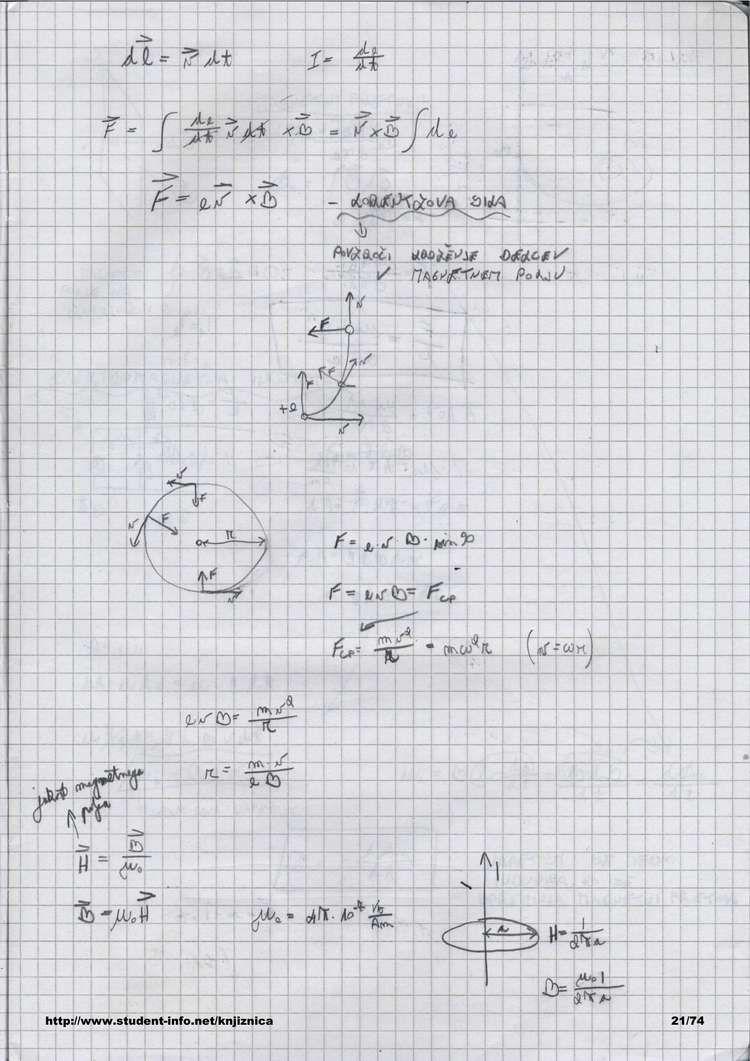 d\vec{l} = \vec{v} dt    I = \frac{de}{dt}
\vec{F} = ∫ \frac{de}{dt} \vec{v} dt × \vec{B} = \vec{v} × \vec{B} ∫ de
\vec{F} = e\vec{v} × \vec{B}    – LORENTZOVA SILA
POVZROČI KROŽENJE DELCEV
V MAGNETNEM POLJU
v
F
v
F
F
+e
v
v
F
v
F
r
F
v
F = e v · B · sin 90
F = e v B = F_{cp}
F_{cp} = \frac{mv^2}{r} = mω^2r    (v = ωr)
e v B = \frac{mv^2}{r}
r = \frac{m · v}{e B}
jakost magnetnega
polja
\vec{H} = \frac{\vec{B}}{μ_0}
\vec{B} = μ_0\vec{H}    μ_0 = 4π · 10^{-7} \frac{Vs}{Am}
I
a
H = \frac{I}{2πa}
B = \frac{μ_0 I}{2πa}
http://www.student-info.net/knjiznica    21/74